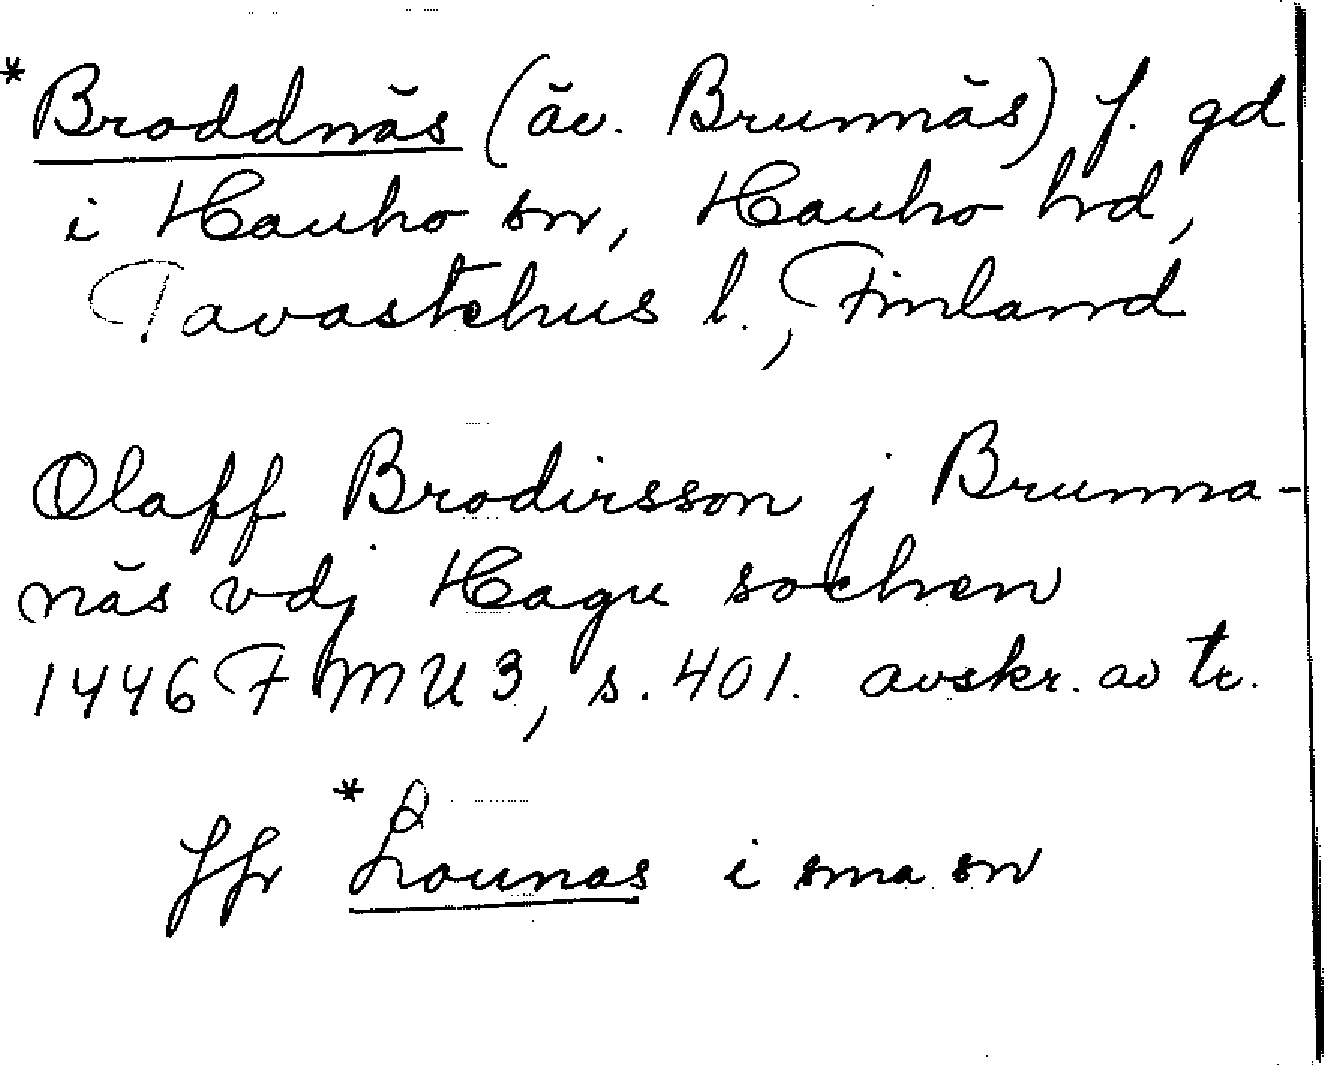 *Broddnäs (äv. Brunnäs) f. gd
i Hauho sn, Hauho hd,
Tavastehus l., Finland
Olaff Brodirsson j Brunna-
näs vdj Hagu sochen
1446 FMU 3, s. 401. avskr. av tr.
jfr *Lounas i sma sn